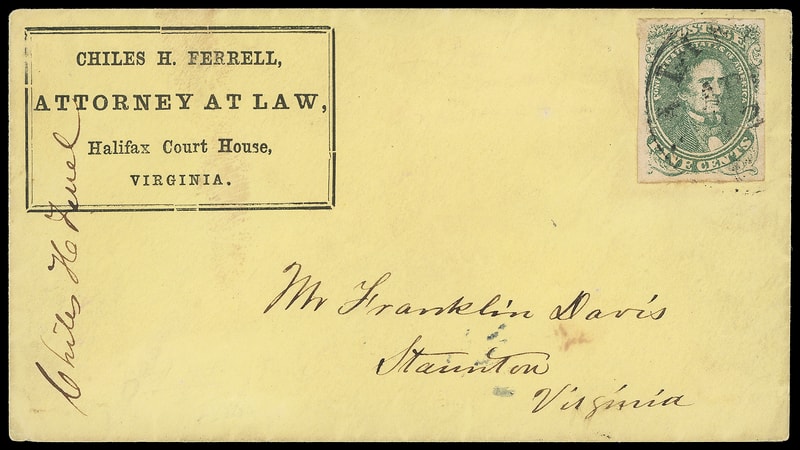 CHILES H. FERRELL,
ATTORNEY AT LAW,
Halifax Court House,
VIRGINIA.
Chiles H Ferrel
CENTS
Mr Franklin Davis
Staunton
Virginia